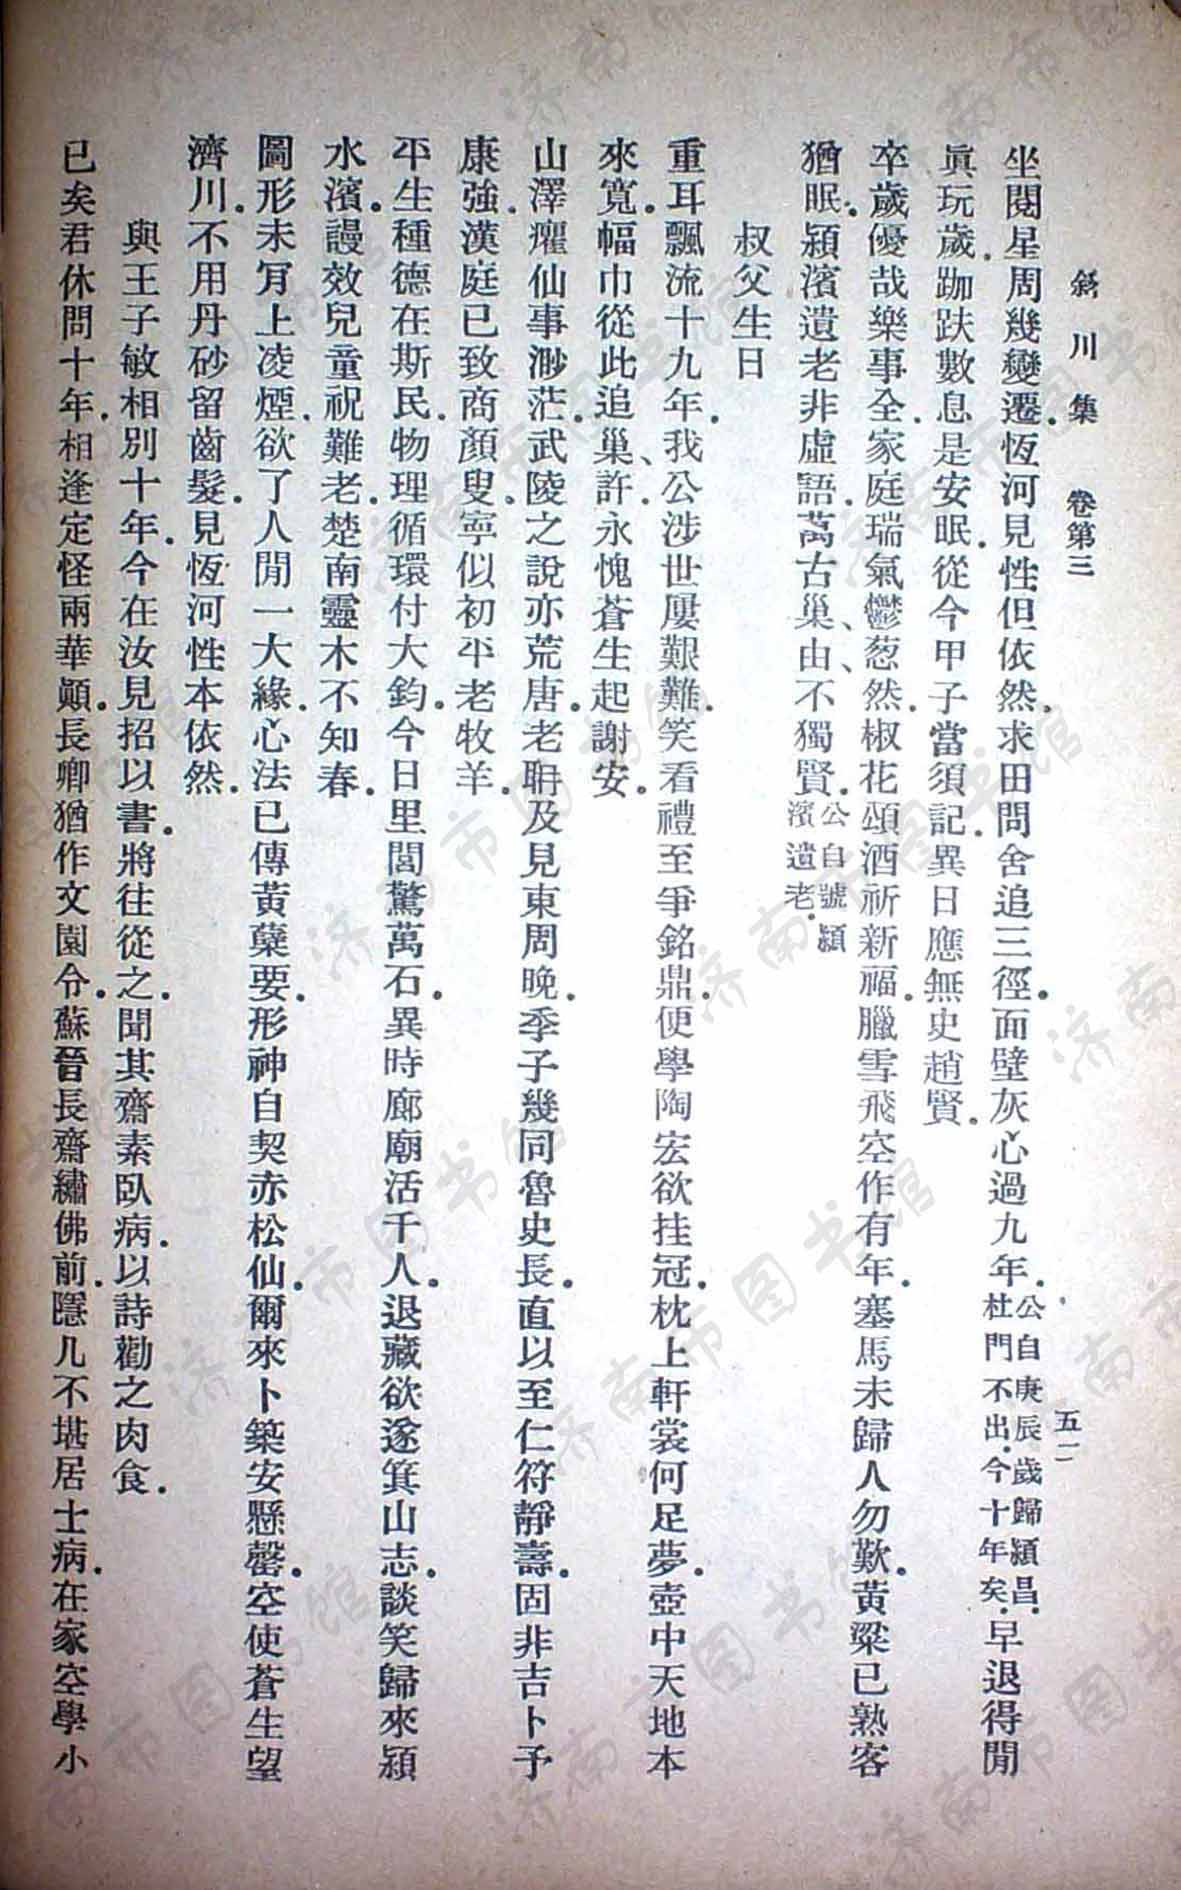 斜川集　卷第三　五一
坐閱星周幾變遷．恆河見性但依然．求田問舍追三徑．面壁灰心過九年．公自庚辰歲歸潁昌．杜門不出．今十年矣．早退得閒
眞玩歲．跏趺數息是安眠．從今甲子當須記．異日應無史趙賢．
卒歲優哉樂事全．家庭瑞氣鬱葱然．椒花頌酒祈新福．臘雪飛空作有年．塞馬未歸人勿歎．黃粱已熟客
猶眠．潁濱遺老非虛語．萬古巢、由、不獨賢．公自號潁濱遺老．
叔父生日
重耳飄流十九年．我公涉世屢艱難．笑看禮至爭銘鼎．便學陶宏欲挂冠．枕上軒裳何足夢．壺中天地本
來寬．幅巾從此追巢、許．永愧蒼生起謝安．
山澤癯仙事渺茫．武陵之說亦荒唐．老聃及見東周晚．季子幾同魯史長．直以至仁符靜壽．固非吉卜予
康強．漢庭已致商顏叟．寧似初平老牧羊．
平生種德在斯民．物理循環付大鈞．今日里閭驚萬石．異時廊廟活千人．退藏欲遂箕山志．談笑歸來潁
水濱．謾效兒童祝難老．楚南靈木不知春．
圖形未肎上凌煙．欲了人閒一大緣．心法已傳黃蘗要．形神自契赤松仙．爾來卜築安懸罄．空使蒼生望
濟川．不用丹砂留齒髮．見恆河性本依然．
與王子敏相別十年．今在汝見招以書．將往從之．聞其齋素臥病．以詩勸之肉食．
已矣君休問十年．相逢定怪兩華顚．長卿猶作文園令．蘇晉長齋繡佛前．隱几不堪居士病．在家空學小